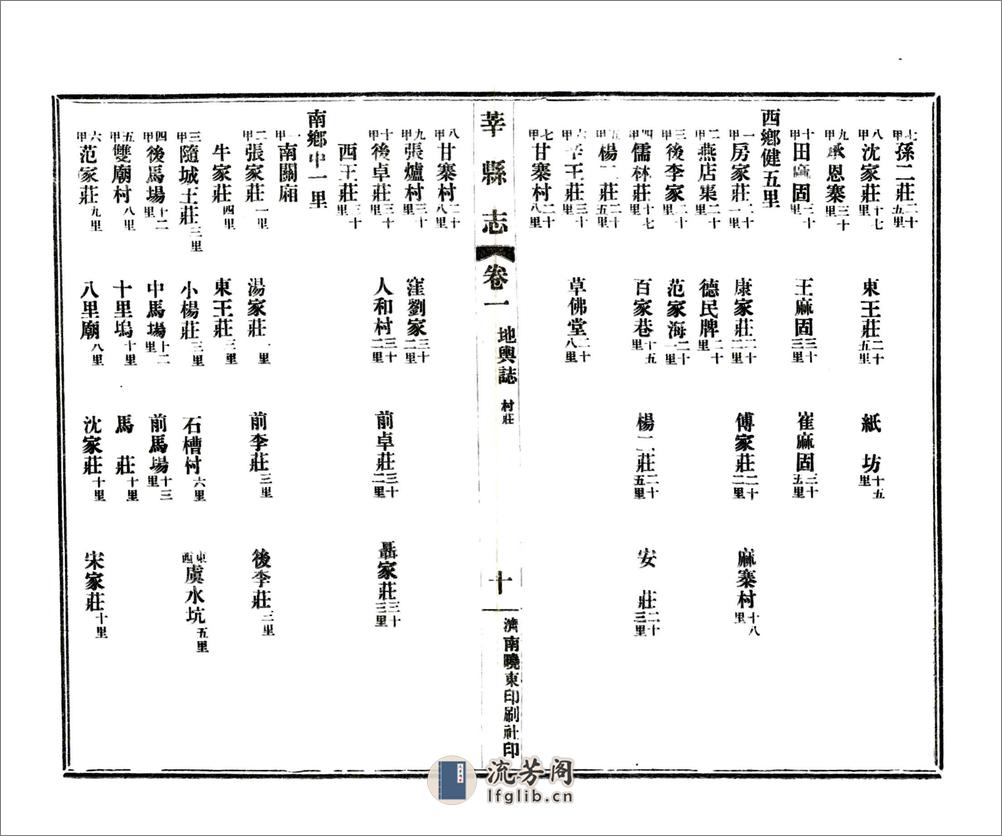 七甲孫二莊二十五里
八甲沈家莊十七里 東王莊二十五里 紙坊十五里
九甲承恩寨三十里
十甲田麻固三十里 王麻固三十三里 崔麻固三十五里
西鄉健五里
一甲房家莊二十里 康家莊二十二里 傅家莊二十二里 麻寨村十八里
二甲燕店集二十里 德民牌二十里
三甲後李家二十里 范家海二十一里
四甲儒林莊十七里 百家巷十五里 楊二莊二十五里 安莊二十三里
五甲楊二莊二十五里
六甲辛王莊三十里 草佛堂二十八里
七甲甘寨村二十八里
莘縣志 卷一 地輿誌 村莊 十 濟南曉東印刷社印
八甲甘寨村二十八里
九甲張爐村三十里 窪劉家三十二里
十甲後卓莊三十二里 人和村三十二里 前卓莊三十二里 聶家莊三十三里
西王莊三十里
南鄉中一里
一甲南關廂
二甲張家莊一里 湯家莊一里 前李莊三里 後李莊三里
牛家莊四里 東王莊三里
三甲隨城王莊三里 小楊莊三里 石槽村六里 東西虞水坑五里
四甲後馬場十二里 中馬場十二里 前馬場十三里
五甲雙廟村八里 十里塢十里 馬莊十里
六甲范家莊九里 八里廟八里 沈家莊十里 宋家莊十里
流芳阁
lfglib.cn